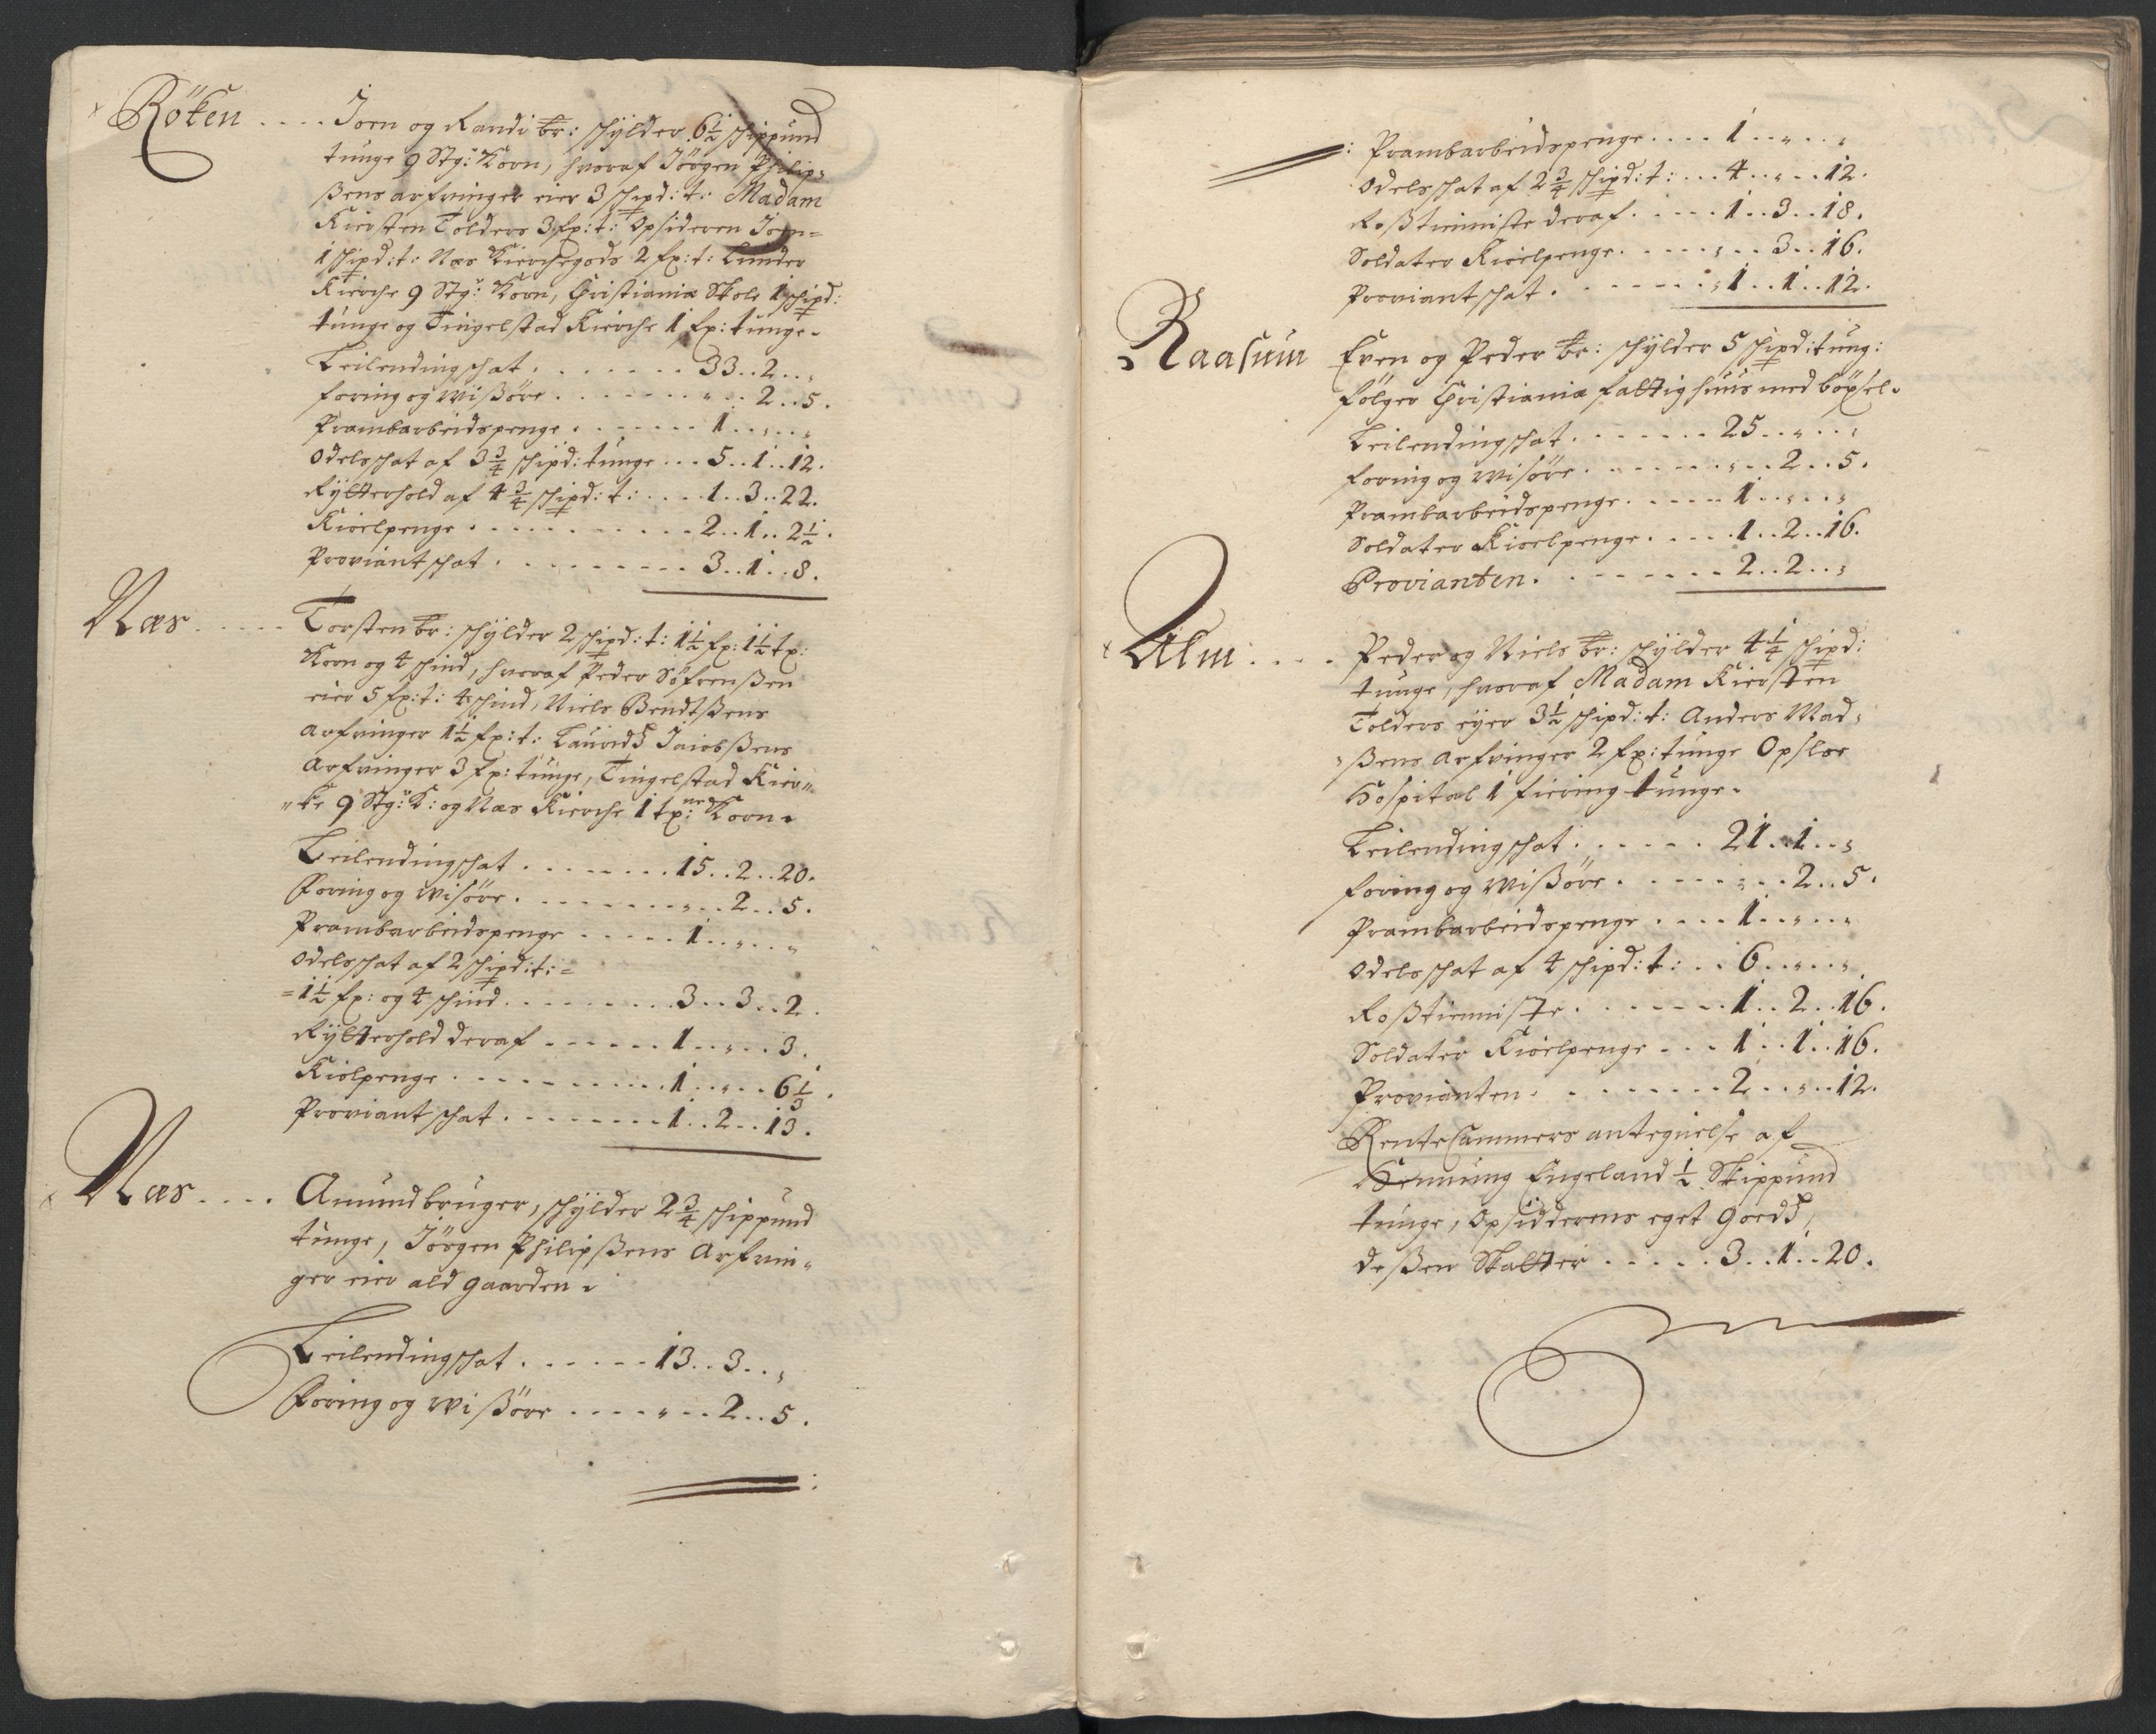 Röken .... Joen og Randi br: schÿlder 6½ schippund
tunge 9 Stg: Korn, hvoraf Jörgen Philip=
ßens arfvinger eier 3 schipd: t: Madam
Kiersten Tolders 3 fx: t: Opsideren Joen =
1 schipd: t: Næs Kirchegods 2 fx: t: Lunder
Kierche 9 Stg: Korn, Christiania Skole 1 schipd:
tunge og Tingelstad Kierche 1 fx: tunge.
Leilendingschat . . . . . . . 33..2..„
foring og Wißöre . . . . . . . „..2..5.
Prambarbeidspenge . . . . . . 1..„..„
Odelsschat af 3¾ schipd: tunge ... 5..1..12.
Rÿtterhold af 4¾ schipd: t: .... 1..3..22.
Kioelpenge . . . . . . . . . . 2..1..2½.
Proviantschat . . . . . . . . . 3..1..8.
Næs ..... Torsten br: schÿlder 2 schipd: t: 1½ fx: 1½ tx:
Korn og 4 schind, hvoraf Peder Söfrenßen
eier 5 fx: t: 4 schind, Niels Bendtßens
arfvinger 1½ fx: t: Lauridtz Jacobßens
Arfvinger 3 fx: tunge, Tingelstad Kier=
"ke 9 Stg: K: og Næs Kierche 1 tx: Korn.
Leilendingschat . . . . . . . 15..2..20.
Foring og Wisöre . . . . . . . „..2..5.
Prambarbeidspenge . . . . . 1..„..„
Odelsschat af 2 schipd: t: =
=1½ fx: og 4 schind . . . . . . . . . 3..3..2.
Rÿtterhold deraf . . . . . . 1..„..3.
Kiolpenge . . . . . . . . . . 1..„..6⅓.
Proviantschat . . . . . . . . 1..2..13.
Næs .... Amund bruger, schÿlder 2¾ schippund
tunge, Jörgen Philipßens Arfvin=
ger eier ald gaarden.
Leilendingschat . . . . . . 13..3..„
Foring og Wißöre . . . . „..2..5.
Prambarbeidspenge .... 1..„..„
Odelsschat af 2¾ schipd: t: ... 4..„..12.
Roßtienniste deraf . . . . . 1..3..18.
Soldater Kioelpenge . . . . . „..3..16.
Proviantschat . . . . . . . . 1..1..12.
Raasum Even og Peder br: schÿlder 5 schipd: tung:
fölger Christiania fattighuus med böxsel.
Leilendingschat . . . . . . . 25..„..„
foring og Wisöre . . . . . . . „..2..5.
Prambarbeidspenge . . . . . 1..„..„
Soldater Kioelpenge . . . . . 1..2..16.
Provianten . . . . . . . . 2..2..„
Alm .... Peder og Niels br: schÿlder 4¼ schipd:
tunge, hvoraf Madam Kiersten
Tolders eÿer 3½ schipd: t: Anders Mad=
"ßens Arfvinger 2 fx: tunge Opsloe
Hospital 1 fiering tunge.
Leilendingschat . . . . . . 21..1..„
foring og Wißöre . . . . . . „..2..5.
Prambarbeidspenge . . . . 1..„..„
Odelsschat af 4 schipd: t: .. 6..„..„
Roßtienniste . . . . . . . 1..2..16.
Soldater Kioelpenge ... 1..1..16.
Provianten . . . . . . . . 2..„..12.
RenteCammers antegnelse af
Henning Engeland ½ Skippund
tunge, Opsidderens eget goedtz,
deßen Skatter . . . . . 3..1..20.